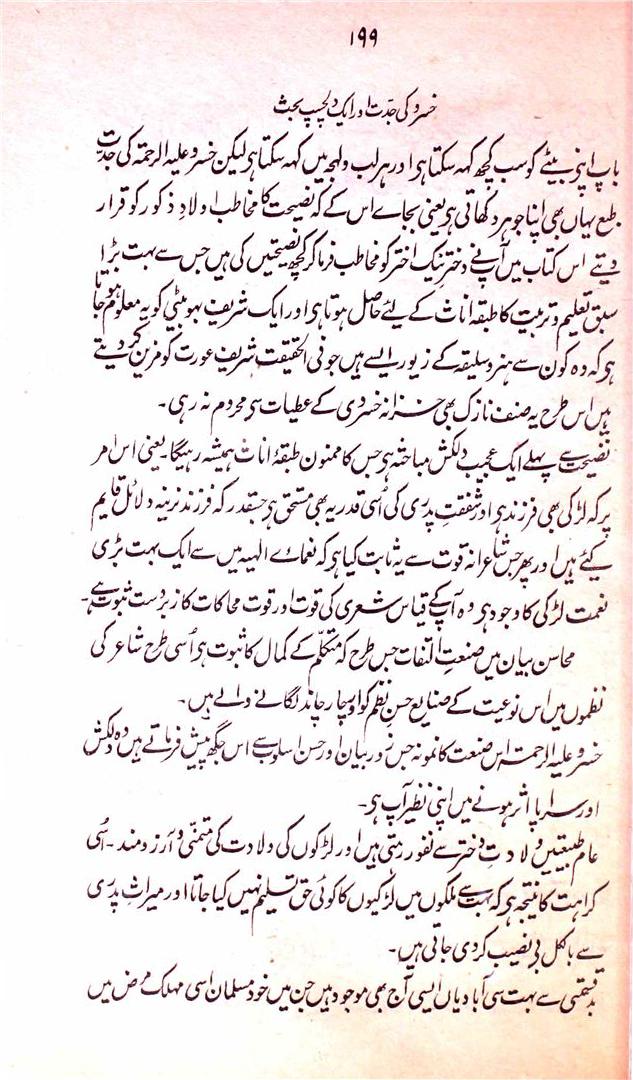 ۱۹۹
خسرو کی جدّت اور ایک دلچسپ بحث
باپ اپنے بیٹے کو سب کچھ کہہ سکتا ہے اور ہر لب و لہجہ میں کہہ سکتا ہے لیکن خسرو علیہ الرحمۃ کی جدّتِ
طبع یہاں بھی اپنا جوہر دکھاتی ہے یعنی بجاے اس کے کہ نصیحت کا مخاطب اولادِ ذکور کو قرار
دیتے اس کتاب میں آپنے دختر نیک اختر کو مخاطب فرما کر کچھ نصیحتیں کی ہیں جس سے بہت بڑا
سبق تعلیم و تربیت کا طبقہ اناث کے لیے حاصل ہوتا ہے اور ایک شریف بہو بیٹی کو یہ معلوم ہو جاتا
ہے کہ وہ کون سے ہنر و سلیقہ کے زیور ایسے ہیں جو فی الحقیقت شریف عورت کو مزین کر دیتے
ہیں اس طرح یہ صنف نازک بھی خزانہ خسروی کے عطیات سے محروم نہ رہی۔
نصیحت سے پہلے ایک عجیب دلکش مباحثہ ہے جس کا ممنون طبقۂ اناث ہمیشہ رہیگا۔ یعنی اس امر
پر کہ لڑکی بھی فرزند ہے اور شفقتِ پدری کی اُسی قدر یہ بھی مستحق ہے جسقدر کہ فرزند نرینہ دلائل قایم
کیئے ہیں اور پھر جس شاعرانہ قوت سے یہ ثابت کیا ہے کہ نعماے الٰہیہ میں سے ایک بہت بڑی
نعمت لڑکی کا وجود ہے وہ آپ کے قیاس شعری کی قوت اور قوت محاکات کا زبردست ثبوت ہے۔
محاسن بیان میں صنعتِ التفات جس طرح کہ متکلّم کے کمال کا ثبوت ہے اُسی طرح شاعر کی
نظموں میں اس نوعیت کے صنایع حسنِ نظم کو اور چار چاند لگانے والے ہیں۔
خسرو علیہ الرحمۃ اس صنعت کا نمونہ جس زور بیان اور حسن اسلوب سے اس جگہ پیش فرماتے ہیں وہ دلکش
اور سراپا اثر ہونے میں اپنی نظیر آپ ہے۔
عام طبیعتیں ولادتِ دختر سے نفور رہتی ہیں اور لڑکوں کی ولادت کی متمنّی و آرزومند۔ اسی
کراہت کا نتیجہ ہے کہ بہت سے ملکوں میں لڑکیوں کا کوئی حق تسلیم نہیں کیا جاتا اور میراثِ پدری
سے بالکل بے نصیب کر دی جاتی ہیں۔
بدقسمتی سے بہت سی آبادیاں ایسی آج بھی موجود ہیں جن میں خود مسلمان اسی مہلک مرض میں